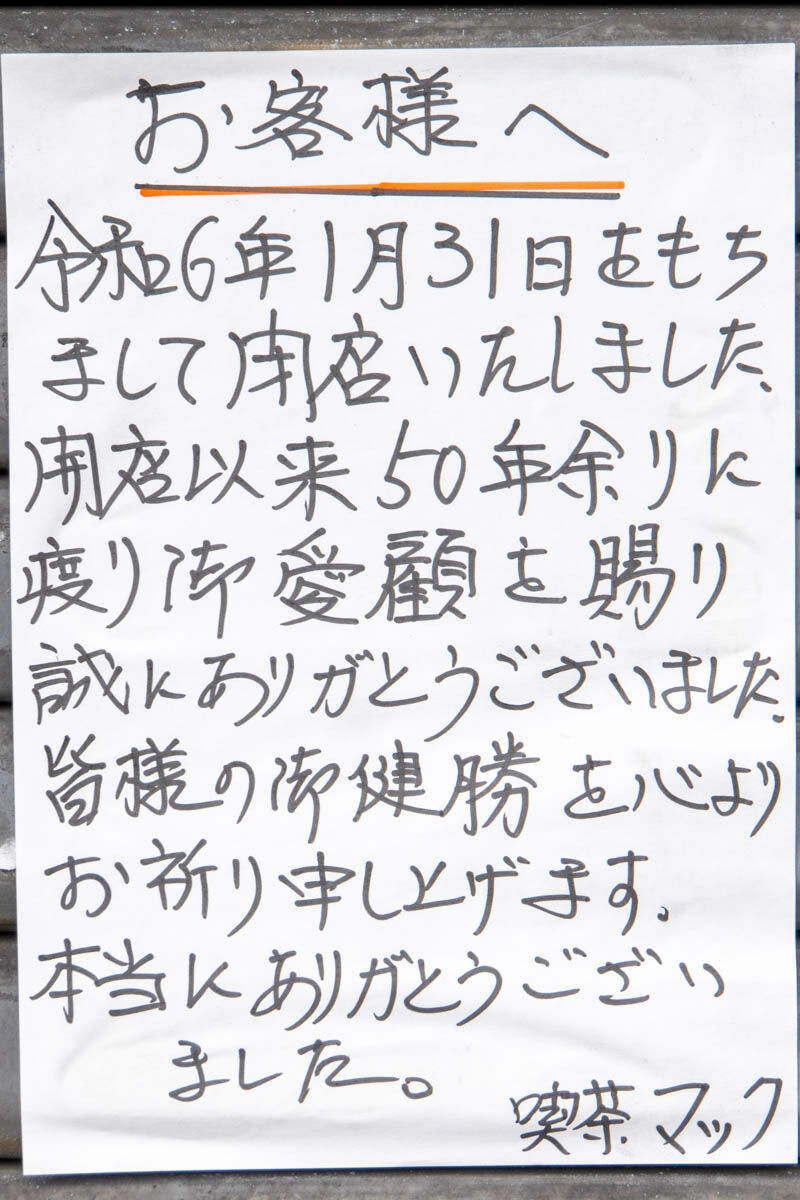 お客様へ
令和6年1月31日をもち
まして閉店いたしました、
開店以来50年余りに
渡り御愛顧を賜り
誠にありがとうございました、
皆様の御健勝を心より
お祈り申し上げます。
本当にありがとうござい
ました。
喫茶マック